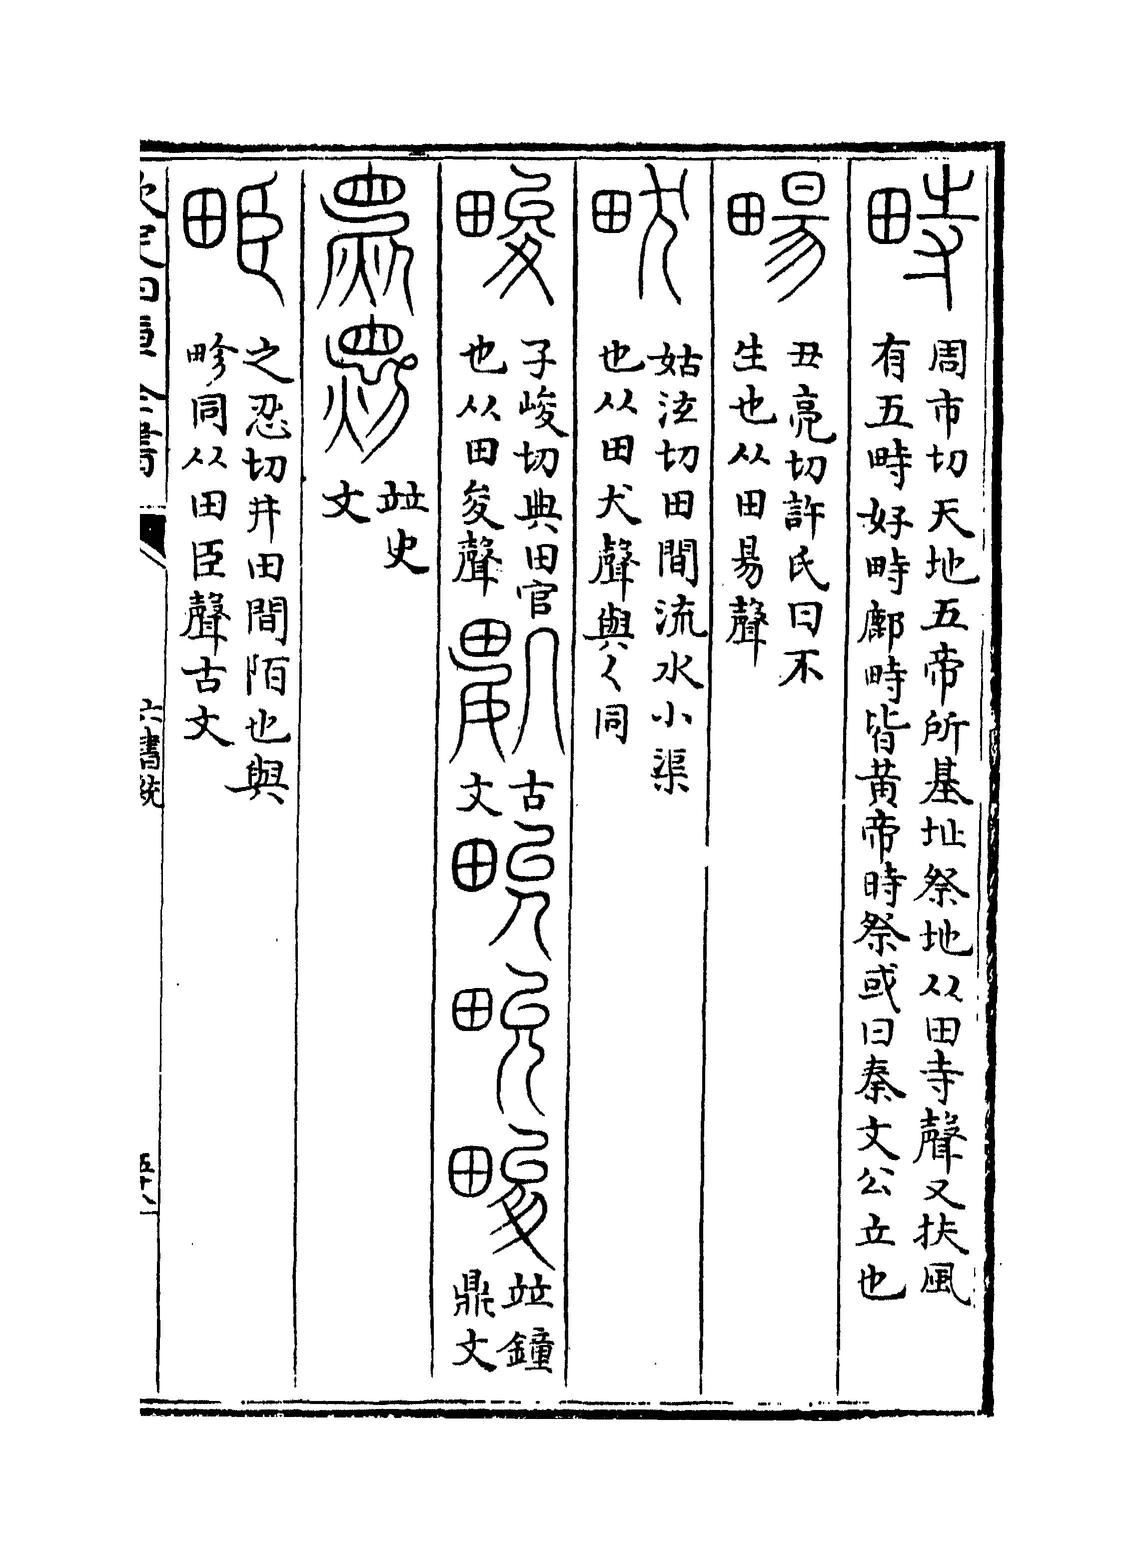 畤
周市切天地五帝所基址祭地从田寺聲又扶風
有五畤好畤鄜畤皆黄帝時祭或曰秦文公立也
畼
丑亮切許氏曰不
生也从田昜聲
畎
姑泫切田間流水小渠
也从田犬聲與〈同
畯
子峻切典田官
也从田夋聲
古
文
竝鐘
鼎文
竝史
文
𤱶
之忍切井田間陌也與
畛同从田臣聲古文
欽定四庫全書
六書統
五十八